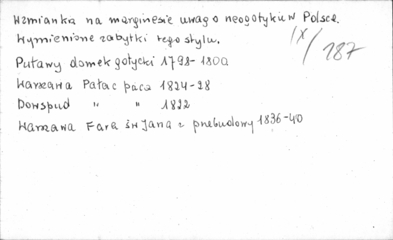 Wzmianka na marginesie uwag o neogotyku w Polsce.
Wymienione zabytki tego stylu.
IX/187
Puławy domek gotycki 1798-1800
Warszawa Pałac Paca 1824-28
Dowspud " " 1822
Warszawa Fara św Jana z przebudowy 1836-40